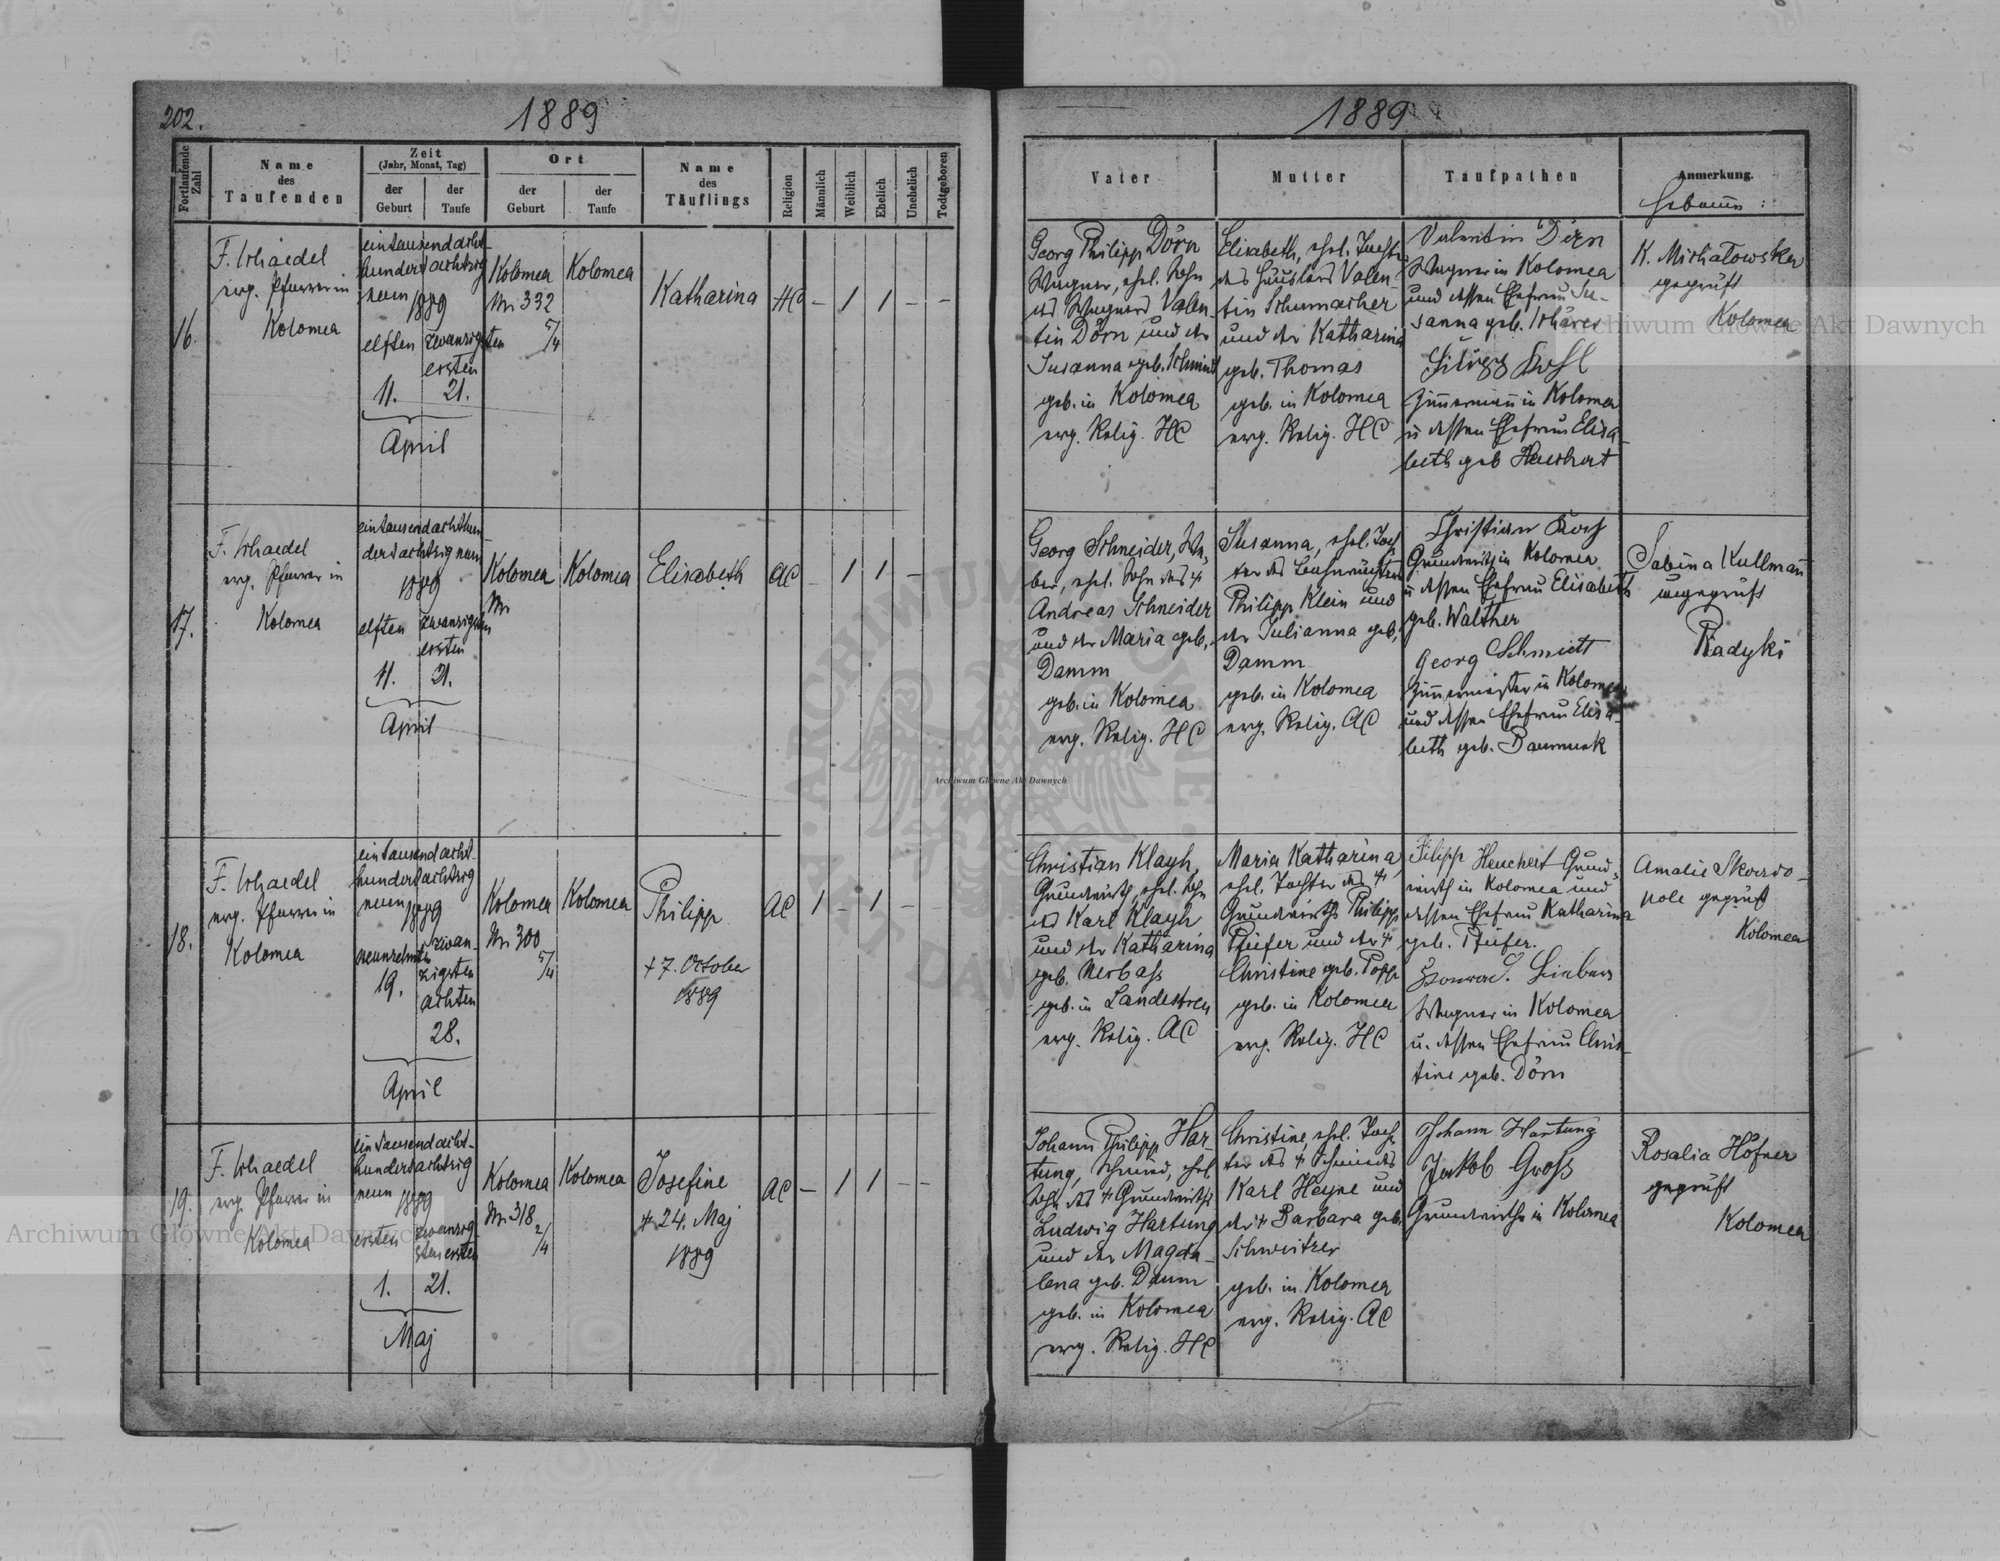 202.
1889
Fortlaufende Zahl
Name
des
Taufenden
Zeit
(Jahr, Monat, Tag)
der
Geburt
der
Taufe
Ort
der
Geburt
der
Taufe
Name
des
Täuflings
Religion
Männlich
Weiblich
Ehelich
Unehelich
Todtgeboren
16.
F. Schaedel
evg. Pfarrer in
Kolomea
eintausendacht-
hundertachtzig
neun
1889
elften
11.
zwanzigsten
ersten
21.
April
Kolomea
Nr. 332
5/4
Kolomea
Katharina
HC
— 1 1 — —
17.
F. Schaedel
evg. Pfarrer in
Kolomea
eintausendachthun-
dertachtzig neun
1889
elften
11.
zwanzigsten
ersten
21.
April
Kolomea
Nr.
Kolomea
Elisabeth
AC
— 1 1 —
18.
F. Schaedel
evg. Pfarrer in
Kolomea
eintausendacht-
hundertachtzig
neun
1889
neunzehnten
19.
zwan-
zigsten
achten
28.
April
Kolomea
Nr. 300
5/4
Kolomea
Philipp
+ 7. October
1889
AC
1 — 1 — —
19.
F. Schaedel
evg. Pfarrer in
Kolomea
eintausendacht-
hundertachtzig
neun
1889
ersten
1.
zwanzig-
sten ersten
21.
Maj
Kolomea
Nr. 318
2/4
Kolomea
Josefine
+ 24. Maj
1889
AC
— 1 1 — —
1889
Vater
Mutter
Taufpathen
Anmerkung.
Hebamme:
Georg Philipp Dörn
Wagner, ehel. Sohn
des Wagners Valen-
tin Dörn und der
Susanna geb. Schmidt
geb. in Kolomea
evg. Relig. HC
Elisabeth, ehel. Tochter
des Häuslers Valen-
tin Schumacher
und der Katharina
geb. Thomas
geb. in Kolomea
evg. Relig. HC
Valentin Dörn
Wagner in Kolomea
und dessen Ehefrau Su-
sanna geb. Schärer
Filipp Kohl
Zimmermann in Kolomea
u dessen Ehefrau Elisa-
beth geb
K. Michałowska
geprüft
Kolomea
Georg Schneider, We-
ber, ehel. Sohn des +
Andreas Schneider
und der Maria geb.
Damm
geb. in Kolomea
evg. Relig. HC
Susanna, ehel. Toch-
ter des
Philipp Klein und
der Julianna geb.
Damm
geb. in Kolomea
evg. Relig. AC
Christian Koch
Grundwirth in Kolomea
u dessen Ehefrau Elisabeth
geb. Walther
Georg Schmidt
Zimmermeister in Kolomea
und dessen Ehefrau Elisa-
beth geb.
Sabina Kullmann
ungeprüft
Radyki
Christian Klayh,
Grundwirth, ehel. Sohn
des Karl Klayh
und der Katharina
geb. Nerbass
geb. in Landestreu
evg. Relig. AC
Maria Katharina,
ehel. Tochter des +
Grundwirths Philipp
Pfeifer und der +
Christine geb. Popp
geb. in Kolomea
evg. Relig. HC
Filipp Heuchert Grund-
wirth in Kolomea und
dessen Ehefrau Katharina
geb. Pfeifer.
Konrad
Wagner in Kolomea
u. dessen Ehefrau Chris-
tine geb. Dörn
Amalie Skowro-
geprüft
Kolomea
Johann Philipp Har-
tung, Schmied, ehel.
Sohn des + Grundwirths
Ludwig Hartung
und der Magda-
lena geb. Damm
geb. in Kolomea
evg. Relig. HC
Christine, ehel. Toch-
ter des + Schmieds
Karl Heyne und
der + Barbara geb.
Schweitzer
geb. in Kolomea
evg. Relig. AC
Johann Hartung
Jakob Gross
Grundwirthe in Kolomea
Rosalia Höfner
geprüft
Kolomea
Archiwum Główne Akt Dawnych
Archiwum Główne Akt Dawnych
Archiwum Główne Akt Dawnych